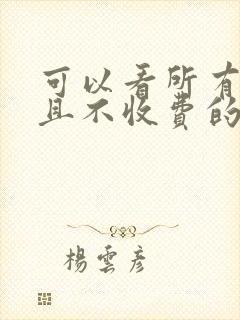 可以看所有
且不收费的
楊雲彦